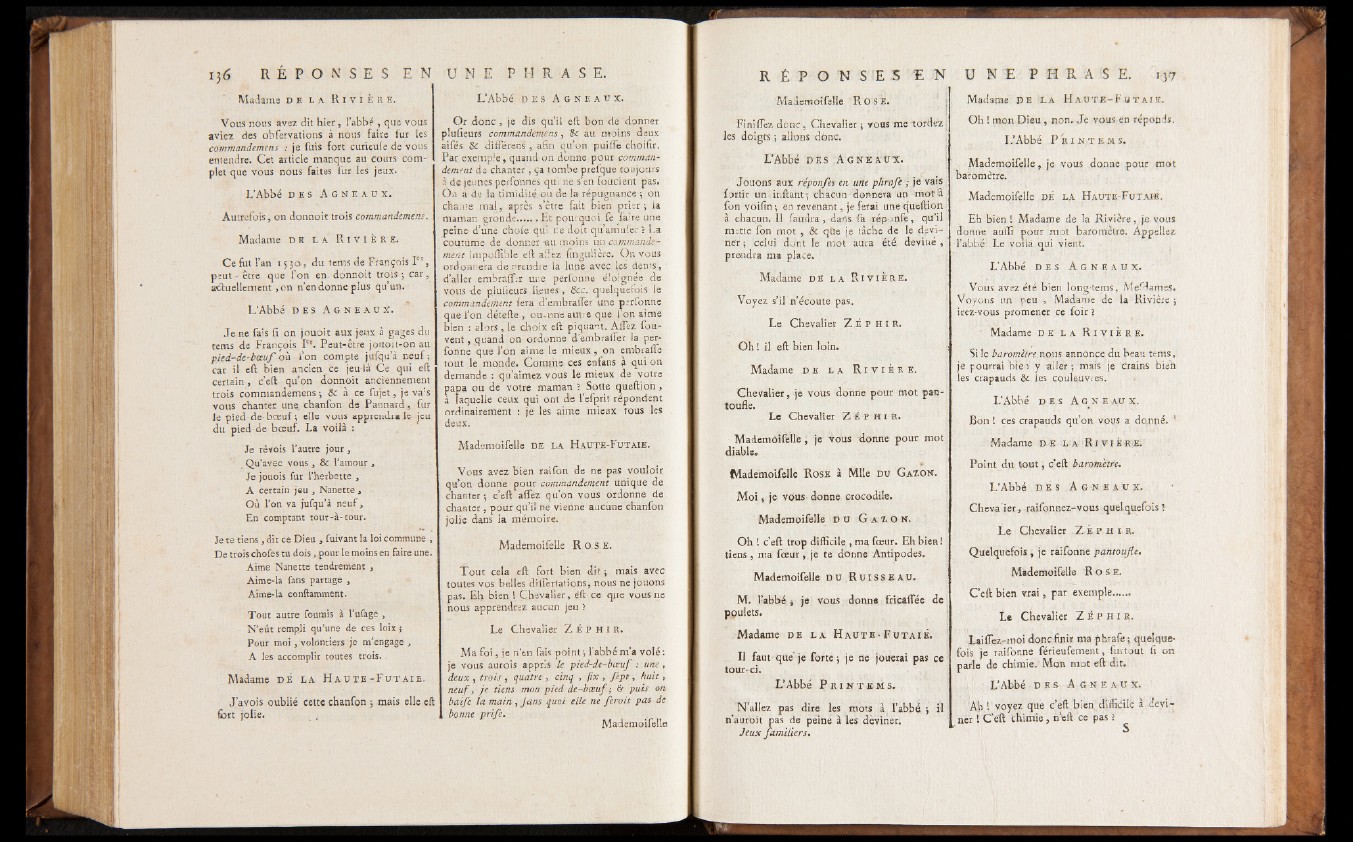 136 RÉPONSES EN UNE PHRASE.
Madame DE LA RIVIÈRE.
Vous nous avez dit hier, l'abbé, que vous
aviez des obſervations à nous faire ſur les
commandemens : je ſuis fort curieuſe de vous
entendre. Cet article manque au cours com-
plet que vous nous faites ſur les jeux.
L'Abbé DES AGNEAUX.
Autrefois, on donnoit trois commandemens.
Madame DE LA RIVIÈRE.
Ce fut l'an 1530, du tems de François Ier,
peut-être que l'on en donnoit trois ; car,
actuellement, on n'en donne plus qu'un.
L'Abbé DES AGNEAUX.
Je ne ſais ſi on jouoit aux jeux à gages du
tems de François Ier. Peut-être jouoit-on au
pied-de-bœuf où l'on compte juſqu'à neuf ;
car il eſt bien ancien ce jeu-là Ce qui eſt
certain, c'eſt qu'on donnoit anciennement
trois commandemens ; & à ce ſujet, je va's
vous chanter une chanſon de Pannard, ſur
le pied-de-bœuf ; elle vous apprendra le jeu
du pied-de bœuf. La voilà :
Je rêvois l'autre jour,
Qu'avec vous, & l'amour,
Je jouois ſur l'herbette,
A certain jeu, Nanette,
Où l'on va juſqu'à neuf,
En comptant tour-à-tour.
Je te tiens, dit ce Dieu, ſuivant la loi commune,
De trois choſes tu dois, pour le moins en faire une.
Aime Nanette tendrement,
Aime-la ſans partage,
Aime-la conſtamment.
Tout autre ſoumis à l'uſage,
N'eût rempli qu'une de ces loix ;
Pour moi, volontiers je m'engage,
A les accomplir toutes trois.
Madame DE LA HAUTE-FUTAIE.
J'avois oublié cette chanſon ; mais elle eſt
fort jolie.
L'Abbé DES AGNEAUX.
Or donc, je dis qu'il eſt bon de donner
pluſieurs commandemens, & au moins deux
aiſés & différens, afin qu'on puiſſe choiſir.
Par exemple, quand on donne pour comman-
dement de chanter, ça tombe preſque toujours
à de jeunes perſonnes qui ne s'en ſoucient pas.
On a de la timidité ou de la répugnance ; on
chante mal, après s'être fait bien prier ; la
maman gronde...... Et pourquoi ſe faire une
peine d'une choſe qui ne doit qu'amuſer ? La
coutume de donner au moins un commande-
ment impoſſible eſt aſſez ſingulière. On vous
ordonnera de prendre la lune avec les dents,
d'aller embraſſer une perſonne éloignée de
vous de pluſieurs lieues, &c. quelquefois le
commandement ſera d'embraſſer une perſonne
que l'on déteſte, ou une autre que l'on aime
bien : alors, le choix eſt piquant. Aſſez ſou-
vent, quand on ordonne d'embraſſer la per-
ſonne que l'on aime le mieux, on embraſſe
tout le monde. Comme ces enfans à qui on
demande : qu'aimez vous le mieux de votre
papa ou de votre maman ? Sotte queſtion,
à laquelle ceux qui ont de l'eſprit répondent
ordinairement : je les aime mieux tous les
deux.
Mademoiſelle DE LA HAUTE-FUTAIE.
Vous avez bien raiſon de ne pas vouloir
qu'on donne pour commandement unique de
chanter ; c'eſt aſſez qu'on vous ordonne de
chanter, pour qu'il ne vienne aucune chanſon
jolie dans la mémoire.
Mademoiſelle ROSE.
Tout cela eſt fort bien dit ; mais avec
toutes vos belles diſſertations, nous ne jouons
pas. Eh bien ! Chevalier, eſt ce que vous ne
nous apprendrez aucun jeu ?
Le Chevalier ZÉPHIR.
Ma foi, je n'en ſais point ; l'abbé m'a volé :
je vous aurois appris le pied-de-bœuf : une,
deux, trois, quatre, cinq, ſix, ſept, huit,
neuf, je tiens mon pied de-bœuf ; & puis on
baiſe la main, ſans quoi elle ne ſeroit pas de
bonne priſe.
Mademoiſelle
RÉPONSES EN UNE PHRASE. 137
Mademoiſelle ROSE.
Finiſſez donc, Chevalier ; vous me tordez
les doigts ; allons donc.
L'Abbé DES AGNEAUX.
Jouons aux réponſes en une phraſe ; je vais
ſortir un inſtant ; chacun donnera un mot à
ſon voiſin ; en revenant, je ferai une queſtion
à chacun. Il faudra, dans ſa réponſe, qu'il
mette ſon mot, & que je tâche de le devi-
ner ; celui dont le mot aura été deviné,
prendra ma place.
Madame DE LA RIVIÈRE.
Voyez s'il n'écoute pas.
Le Chevalier ZÉPHIR.
Oh ! il eſt bien loin.
Madame DE LA RIVIÈRE.
Chevalier, je vous donne pour mot pan-
toufle.
Le Chevalier ZÉPHIR.
Mademoiſelle, je vous donne pour mot
diable.
Mademoiſelle ROSE à Mlle DU GAZON.
Moi, je vous donne crocodile.
Mademoiſelle DU GAZON.
Oh ! c'eſt trop difficile, ma ſœur. Eh bien !
tiens, ma ſœur, je te donne Antipodes.
Mademoiſelle DU RUISSEAU.
M. l'abbé, je vous donne fricaſſée de
poulets.
Madame DE LA HAUTE-FUTAIE.
Il faut que je ſorte ; je ne jouerai pas ce
tour-ci.
L'Abbé PRINTEMS.
N'allez pas dire les mots à l'abbé ; il
n'auroit pas de peine à les deviner.
Jeux familiers.
Madame DE LA HAUTE-FUTAIE.
Oh ! mon Dieu, non. Je vous en réponds.
L'Abbé PRINTEMS.
Mademoiſelle, je vous donne pour mot
baromètre.
Mademoiſelle DE LA HAUTE-FUTAIE.
Eh bien ! Madame de la Rivière, je vous
donne auſſi pour mot baromètre. Appellez
l'abbé. Le voilà qui vient.
L'Abbé DES AGNEAUX.
Vous avez été bien long-tems, Meſdames.
Voyons un peu, Madame de la Rivière ;
irez-vous promener ce ſoir ?
Madame DE LA RIVIÈRE.
Si le baromètre nous annonce du beau tems,
je pourrai bien y aller ; mais je crains bien
les crapauds & les couleuvres.
L'Abbé DES AGNEAUX.
Bon ! ces crapauds qu'on vous a donné.
Madame DE LA RIVIÈRE.
Point du tout, c'eſt baromètre.
L'Abbé DES AGNEAUX.
Cheva ier, raiſonnez-vous quelquefois ?
Le Chevalier ZÉPHIR.
Quelquefois, je raiſonne pantoufle.
Mademoiſelle ROSE.
C'eſt bien vrai, par exemple......
Le Chevalier ZÉPHIR.
Laiſſez-moi donc finir ma phraſe ; quelque-
fois je raiſonne ſérieuſement, ſurtout ſi on
parle de chimie. Mon mot eſt dit.
L'Abbé DES AGNEAUX.
Ah ! voyez que c'eſt bien difficile à devi-
ner ! C'eſt chimie, n'eſt ce pas ?
S